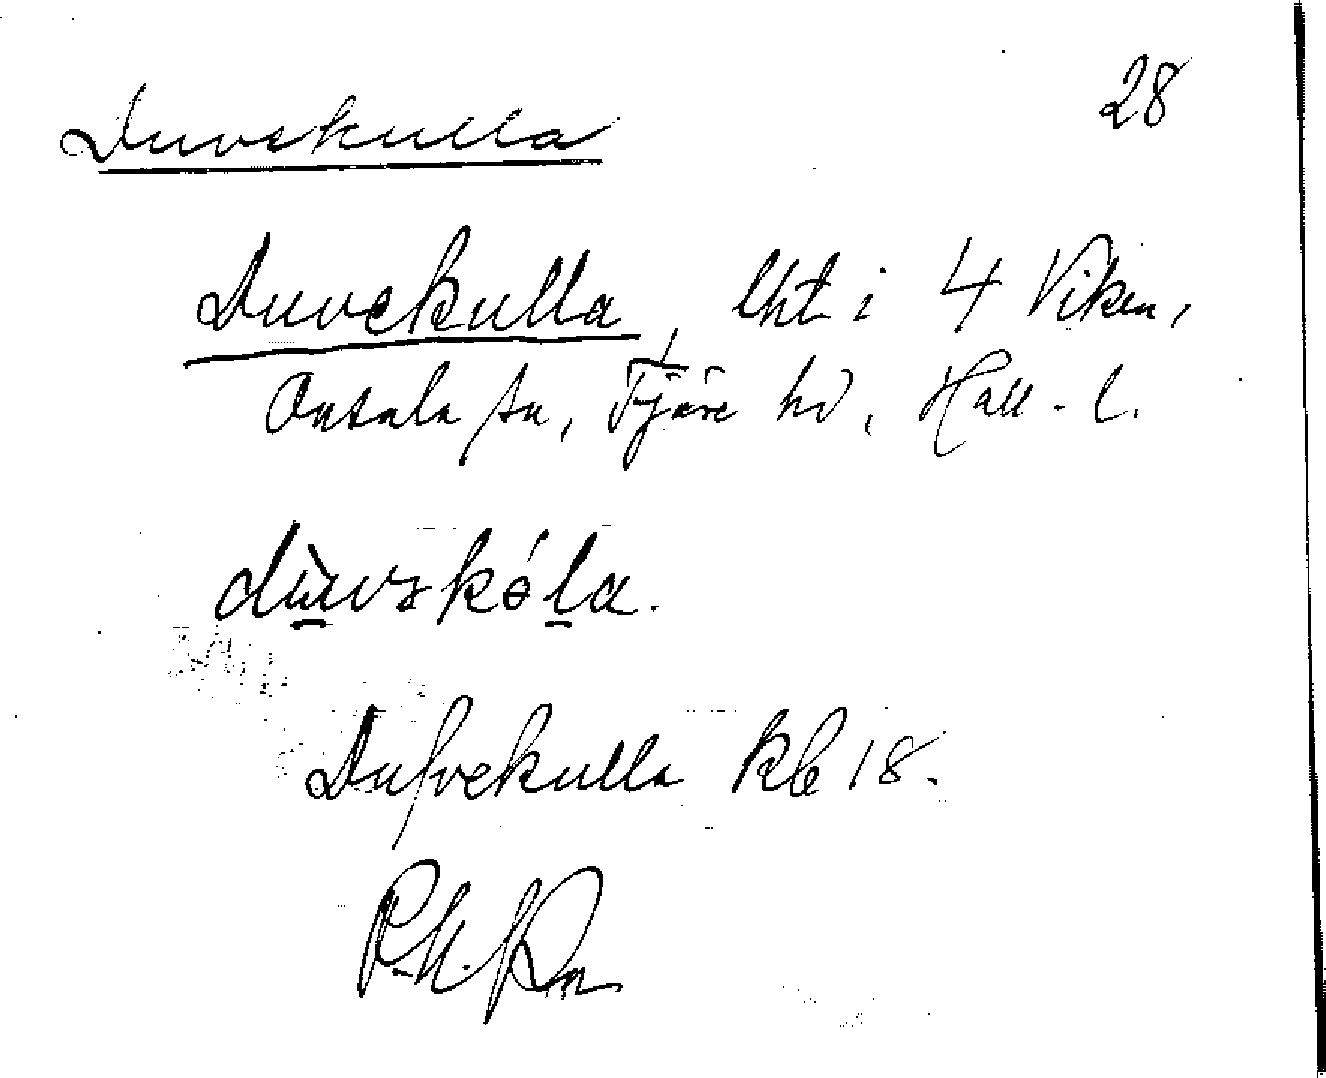 28
Duvekulla
Duvekulla, lht i 4 Viken,
Onsala sn, Fjäre hd, Hall. l.
dùvəkóla.
Dufvekulla kb 18.